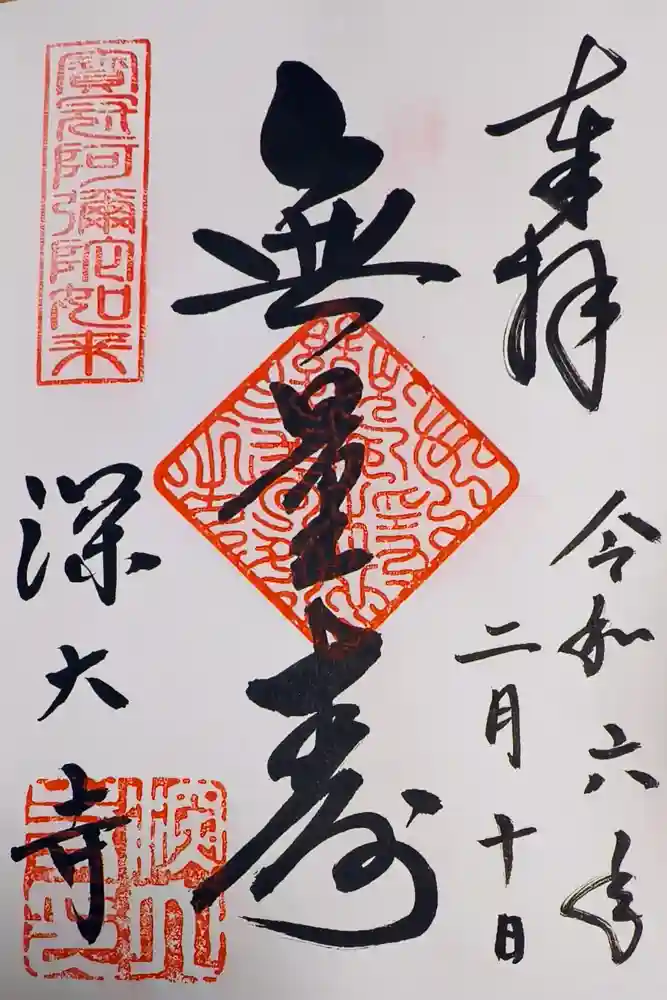 奉拝
令和六年
二月十日
無量寿
寳冠阿彌陀如来
深大寺